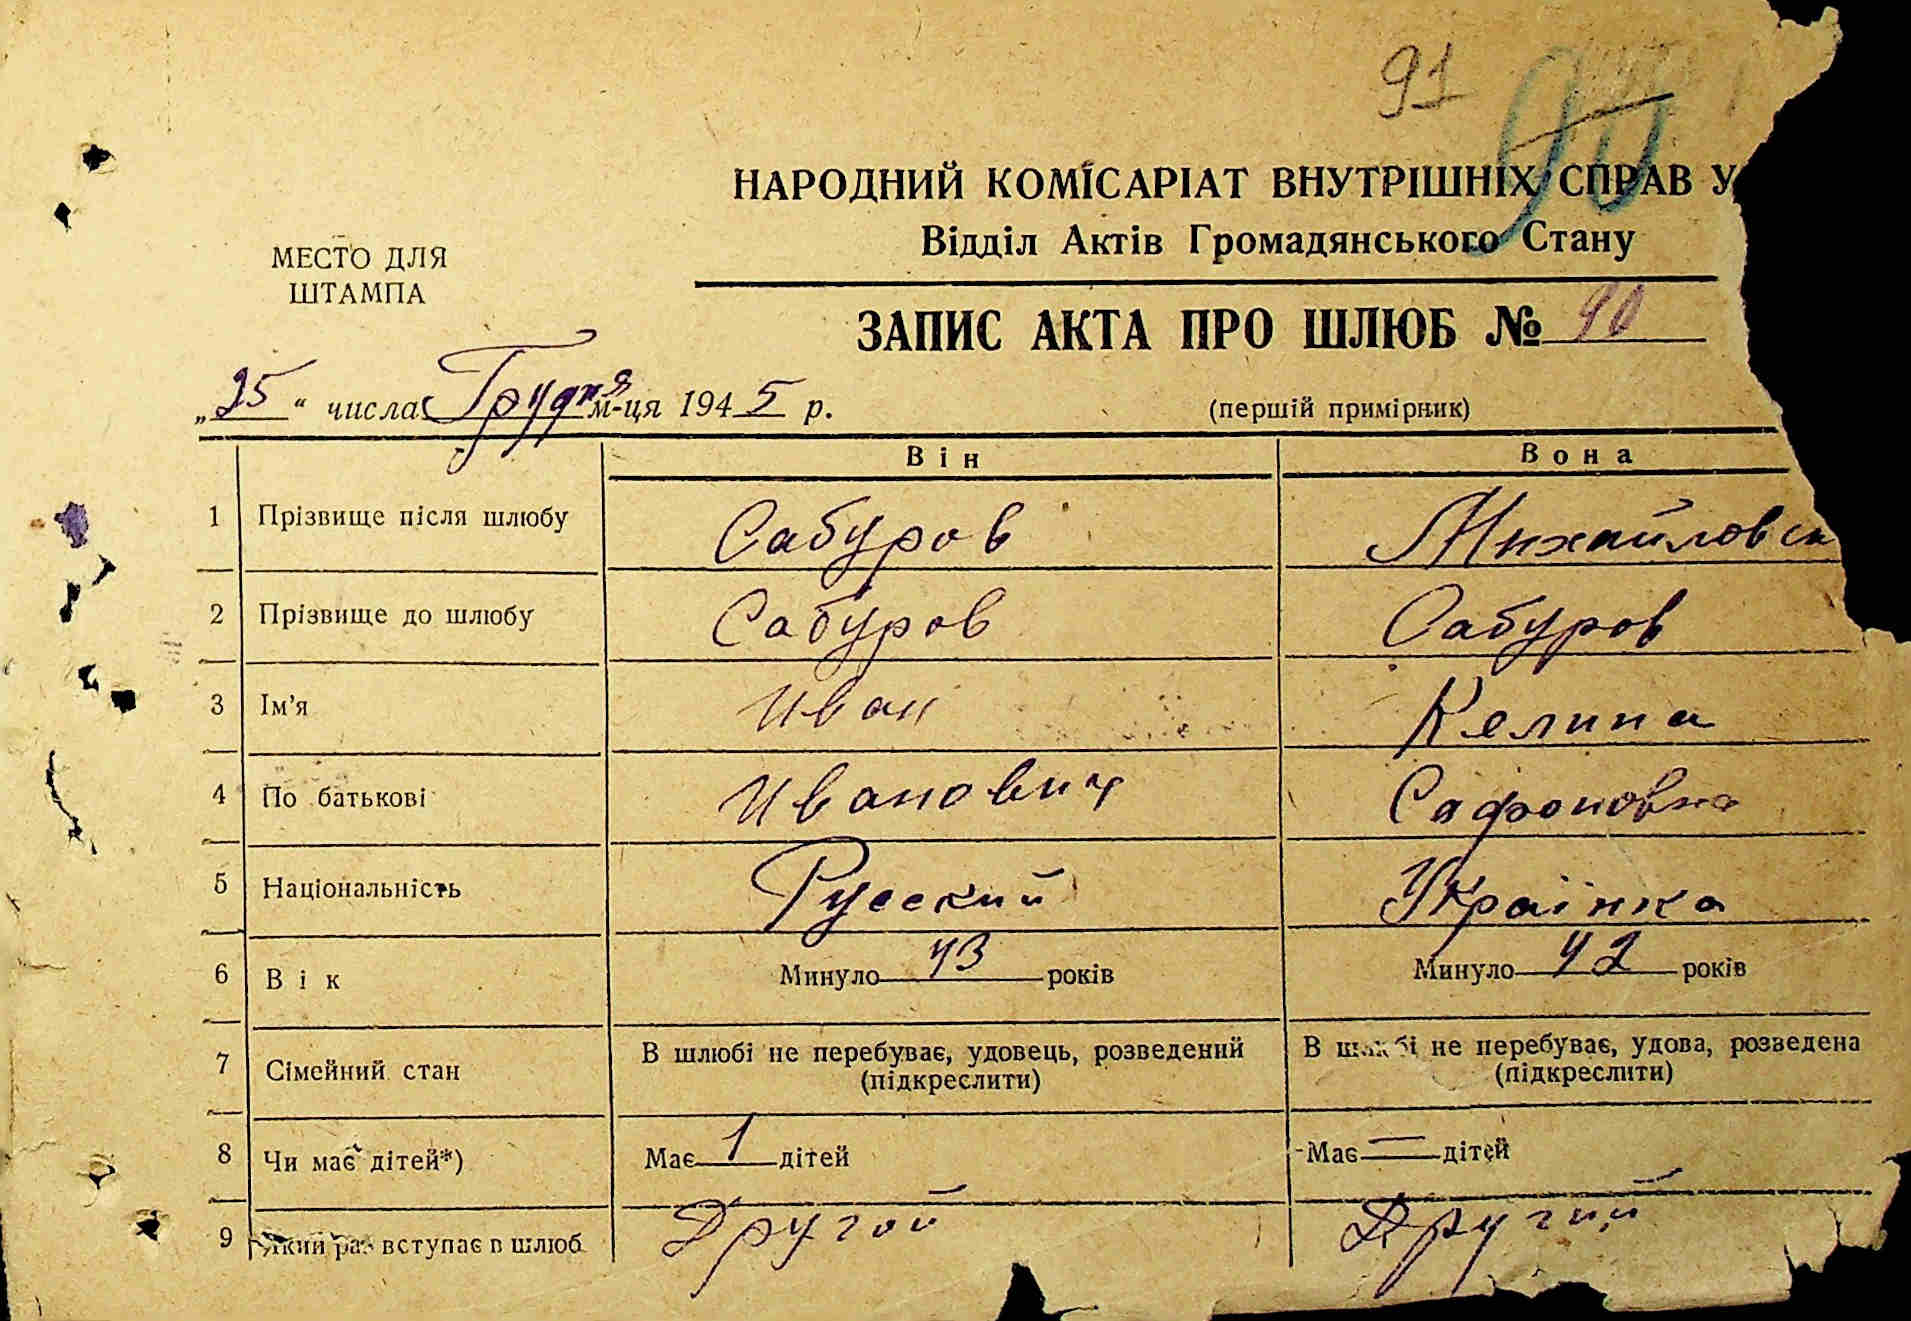 91 90
НАРОДНИЙ КОМІСАРІАТ ВНУТРІШНІХ СПРАВ У
Відділ Актів Громадянського Стану
МЕСТО ДЛЯ
ШТАМПА
ЗАПИС АКТА ПРО ШЛЮБ № 90
„25“ числа Грудня м-ця 1945 р.
(першій примірник)
Він Вона
1 Прізвище після шлюбу Сабуров Михайловск
2 Прізвище до шлюбу Сабуров Сабуров
3 Ім’я Иван Келина
4 По батькові Иванович Сафоновна
5 Національність Русский Українка
6 Вік Минуло 43 років Минуло 42 років
7 Сімейний стан В шлюбі не перебуває, удовець, розведений (підкреслити) В шлюбі не перебуває, удова, розведена (підкреслити)
8 Чи має дітей*) Має 1 дітей Має — дітей
9 Який раз вступає в шлюб Другой Другий